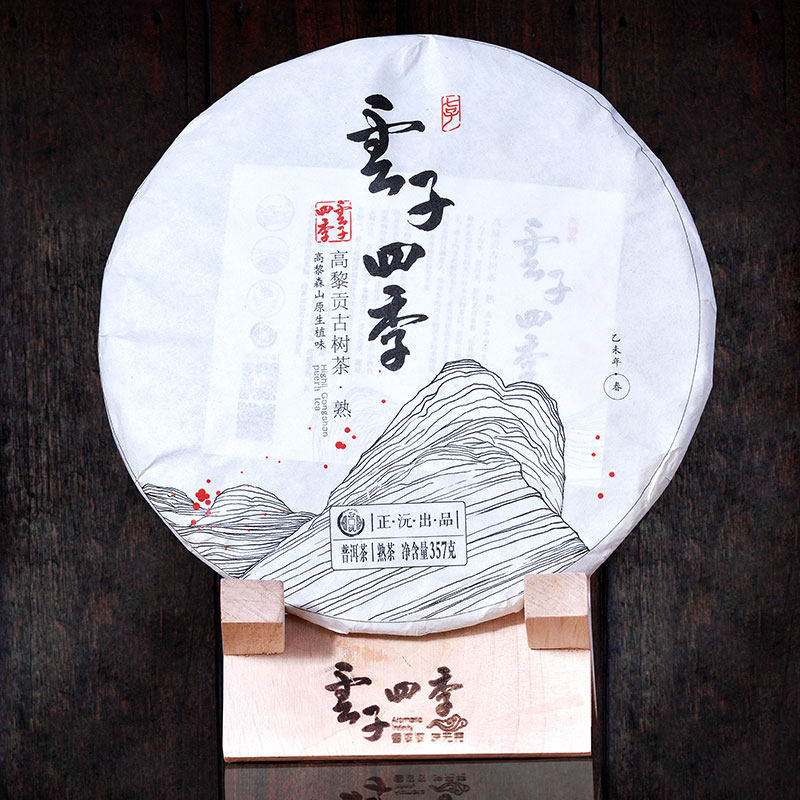 雲子四季
雲子
四季
高黎贡古树茶·熟
高黎森山原生植味
Highli Gongshan
puerh tea
乙未年·春
正·沅·出·品
普洱茶 熟茶 净含量357克
雲子四季
Aromatic
Infinity